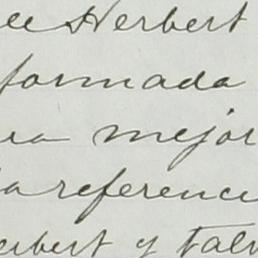 Herbert
formada
mejor
a referenc
erbert y tal